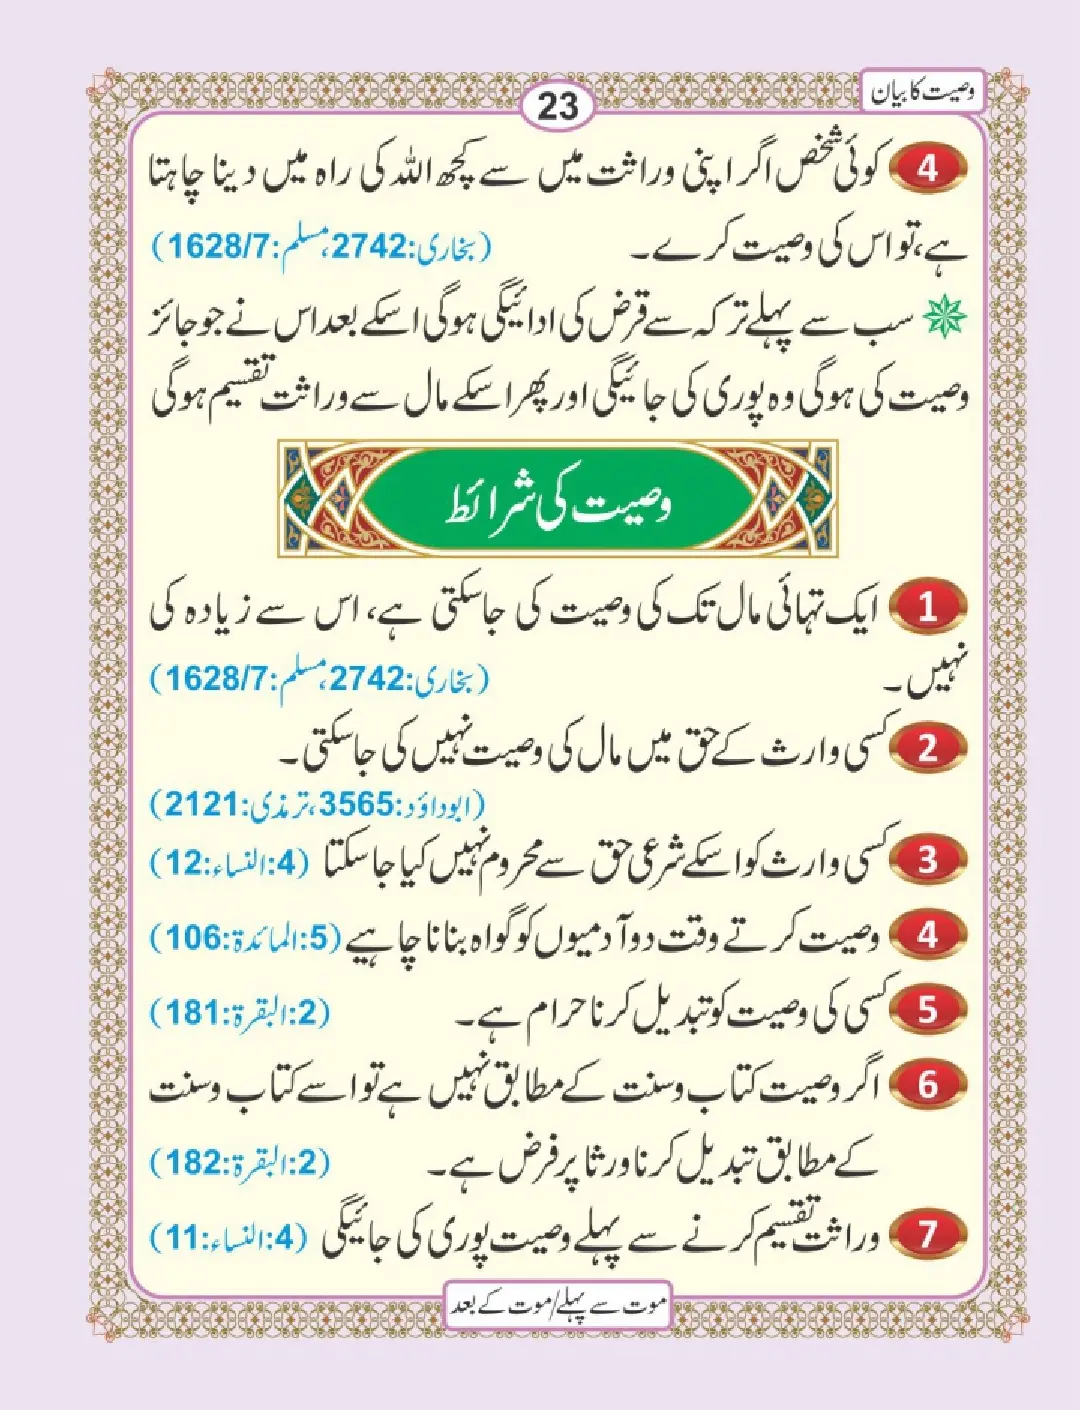 وصیت کا بیان
23
4 کوئی شخص اگر اپنی وراثت میں سے کچھ اللہ کی راہ میں دینا چاہتا
ہے، تو اس کی وصیت کرے۔ (بخاری:2742، مسلم:1628/7)
سب سے پہلے ترکہ سے قرض کی ادائیگی ہوگی اسکے بعد اس نے جو جائز
وصیت کی ہوگی وہ پوری کی جائیگی اور پھر اسکے مال سے وراثت تقسیم ہوگی
وصیت کی شرائط
1 ایک تہائی مال تک کی وصیت کی جاسکتی ہے، اس سے زیادہ کی
نہیں۔ (بخاری:2742، مسلم:1628/7)
2 کسی وارث کے حق میں مال کی وصیت نہیں کی جاسکتی۔
(ابوداؤد:3565، ترمذی:2121)
3 کسی وارث کو اسکے شرعی حق سے محروم نہیں کیا جاسکتا (4:النساء:12)
4 وصیت کرتے وقت دو آدمیوں کو گواہ بنانا چاہیے (5:المائدة:106)
5 کسی کی وصیت کو تبدیل کرنا حرام ہے۔ (2:البقرة:181)
6 اگر وصیت کتاب وسنت کے مطابق نہیں ہے تو اسے کتاب وسنت
کے مطابق تبدیل کرنا ورثا پر فرض ہے۔ (2:البقرة:182)
7 وراثت تقسیم کرنے سے پہلے وصیت پوری کی جائیگی (4:النساء:11)
موت سے پہلے/موت کے بعد